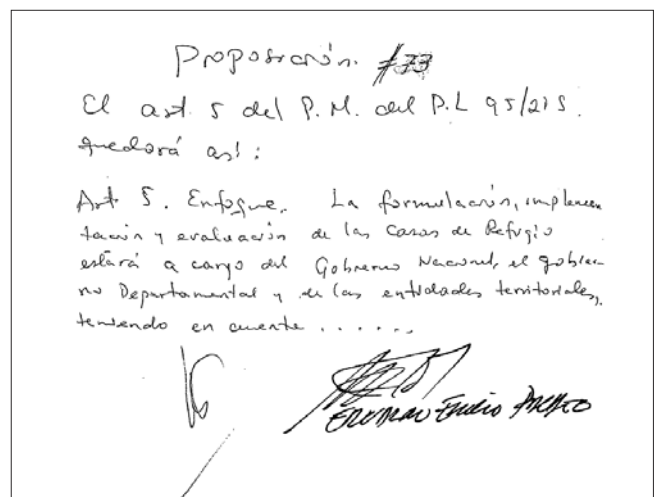 Proposición. #33
El art. 5 del P.M. del P.L 95/215.
quedará así:
Art 5. Enfoque. La formulación, implemen
tación y evaluación de las Casas de Refugio
estará a cargo del Gobierno Nacional, el gobier-
no Departamental y de las entidades territoriales,
teniendo en cuenta ......